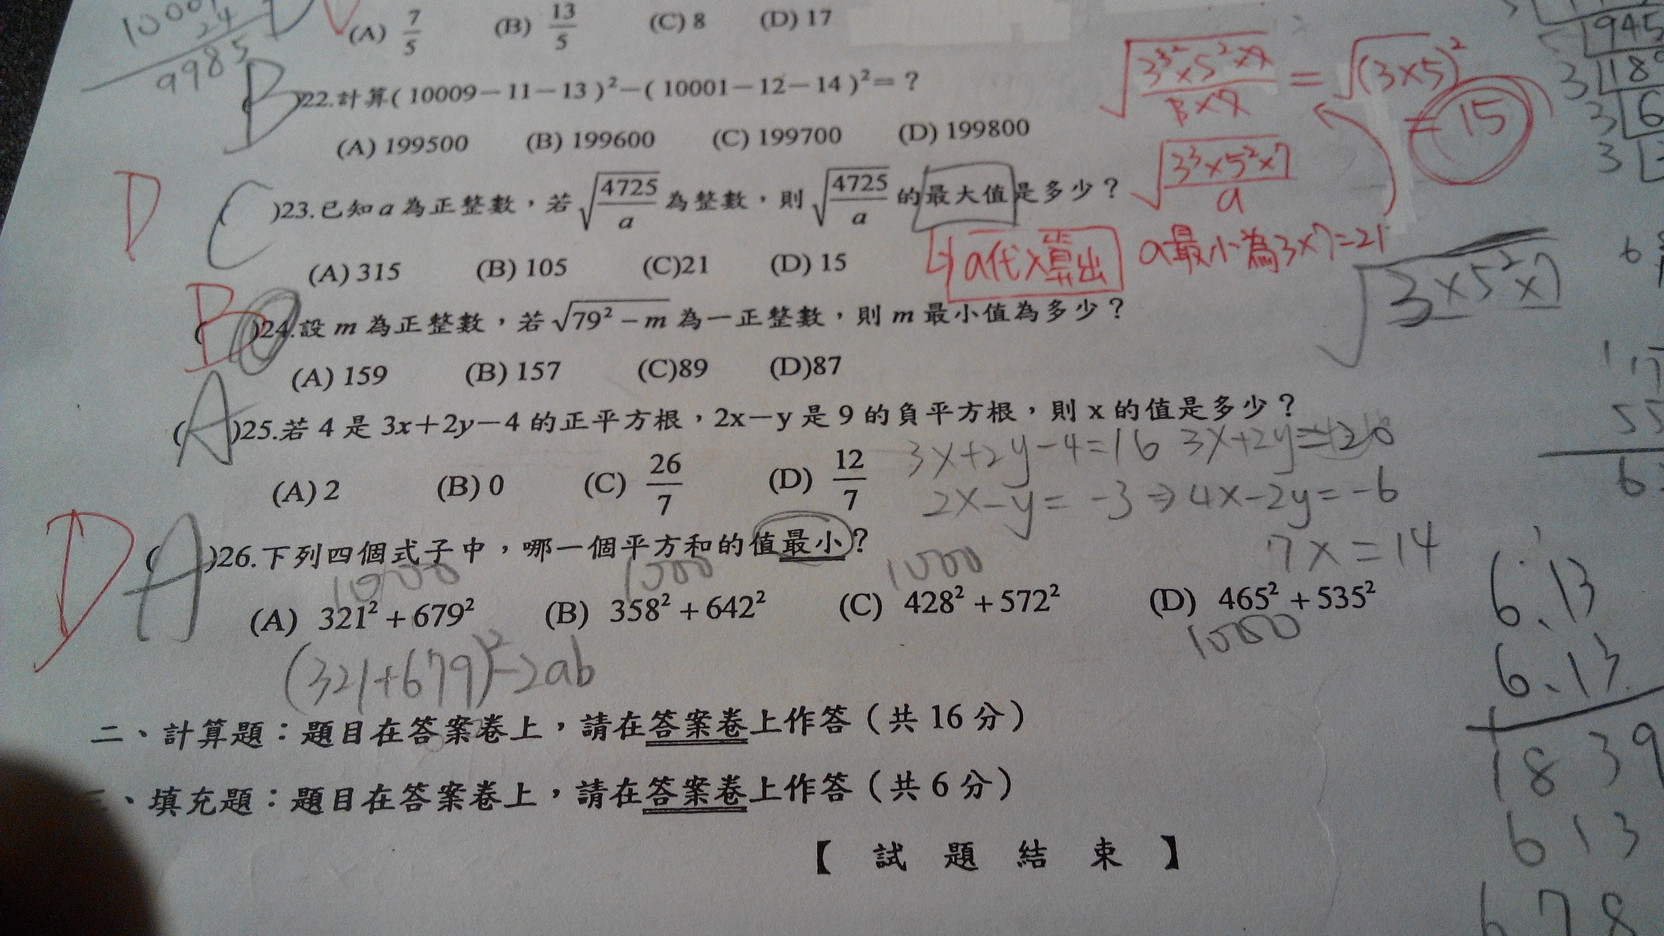 10001
24
9985
(A) 7/5 (B) 13/5 (C) 8 (D) 17
B )22.計算( 10009－11－13 )²－( 10001－12－14 )²＝？
(A) 199500 (B) 199600 (C) 199700 (D) 199800
√(3³×5²×7/3×7) = √(3×5)² = 15
D C )23.已知 a 為正整數，若 √(4725/a) 為整數，則 √(4725/a) 的最大值是多少？
√(3³×5²×7/a)
a代入算出 a最小為3×7=21
(A) 315 (B) 105 (C)21 (D) 15
√3×5²×7
B ( )24.設 m 為正整數，若 √(79²－m) 為一正整數，則 m 最小值為多少？
(A) 159 (B) 157 (C)89 (D)87
( A )25.若 4 是 3x＋2y－4 的正平方根，2x－y 是 9 的負平方根，則 x 的值是多少？
3x+2y-4=16 3x+2y=20
(A) 2 (B) 0 (C) 26/7 (D) 12/7
2x-y=-3⇒4x-2y=-6
7x=14
D ( A )26.下列四個式子中，哪一個平方和的值最小？
1000 1000 1000
(A) 321²＋679² (B) 358²＋642² (C) 428²＋572² (D) 465²＋535²
1000
(321+679)²-2ab
二、計算題：題目在答案卷上，請在答案卷上作答（共 16 分）
三、填充題：題目在答案卷上，請在答案卷上作答（共 6 分）
【 試 題 結 束 】
945
3
3
3
6.13
6.13
1839
613
678